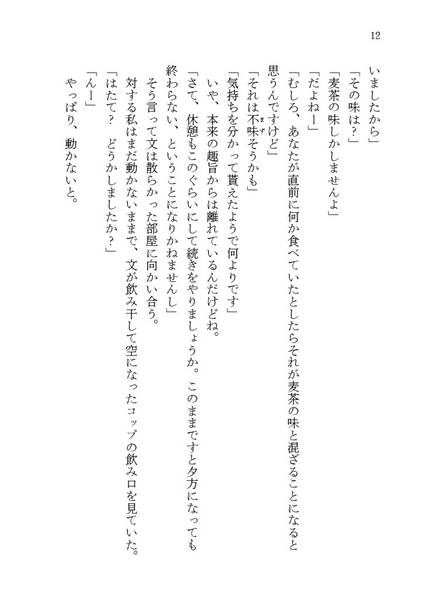 12
いましたから」
「その味は？」
「麦茶の味しかしませんよ」
「だよねー」
「むしろ、あなたが直前に何か食べていたとしたらそれが麦茶の味と混ざることになると
思うんですけど」
「それは不味そうかも」
まず
「気持ちを分かって貰えたようで何よりです」
いや、本来の趣旨からは離れているんだけどね。
「さて、休憩もこのぐらいにして続きをやりましょうか。このままですと夕方になっても
終わらない、ということになりかねませんし」
そう言って文は散らかった部屋に向かい合う。
対する私はまだ動かないままで、文が飲み干して空になったコップの飲み口を見ていた。
「はたて？　どうかしましたか？」
「んー」
やっぱり、動かないと。